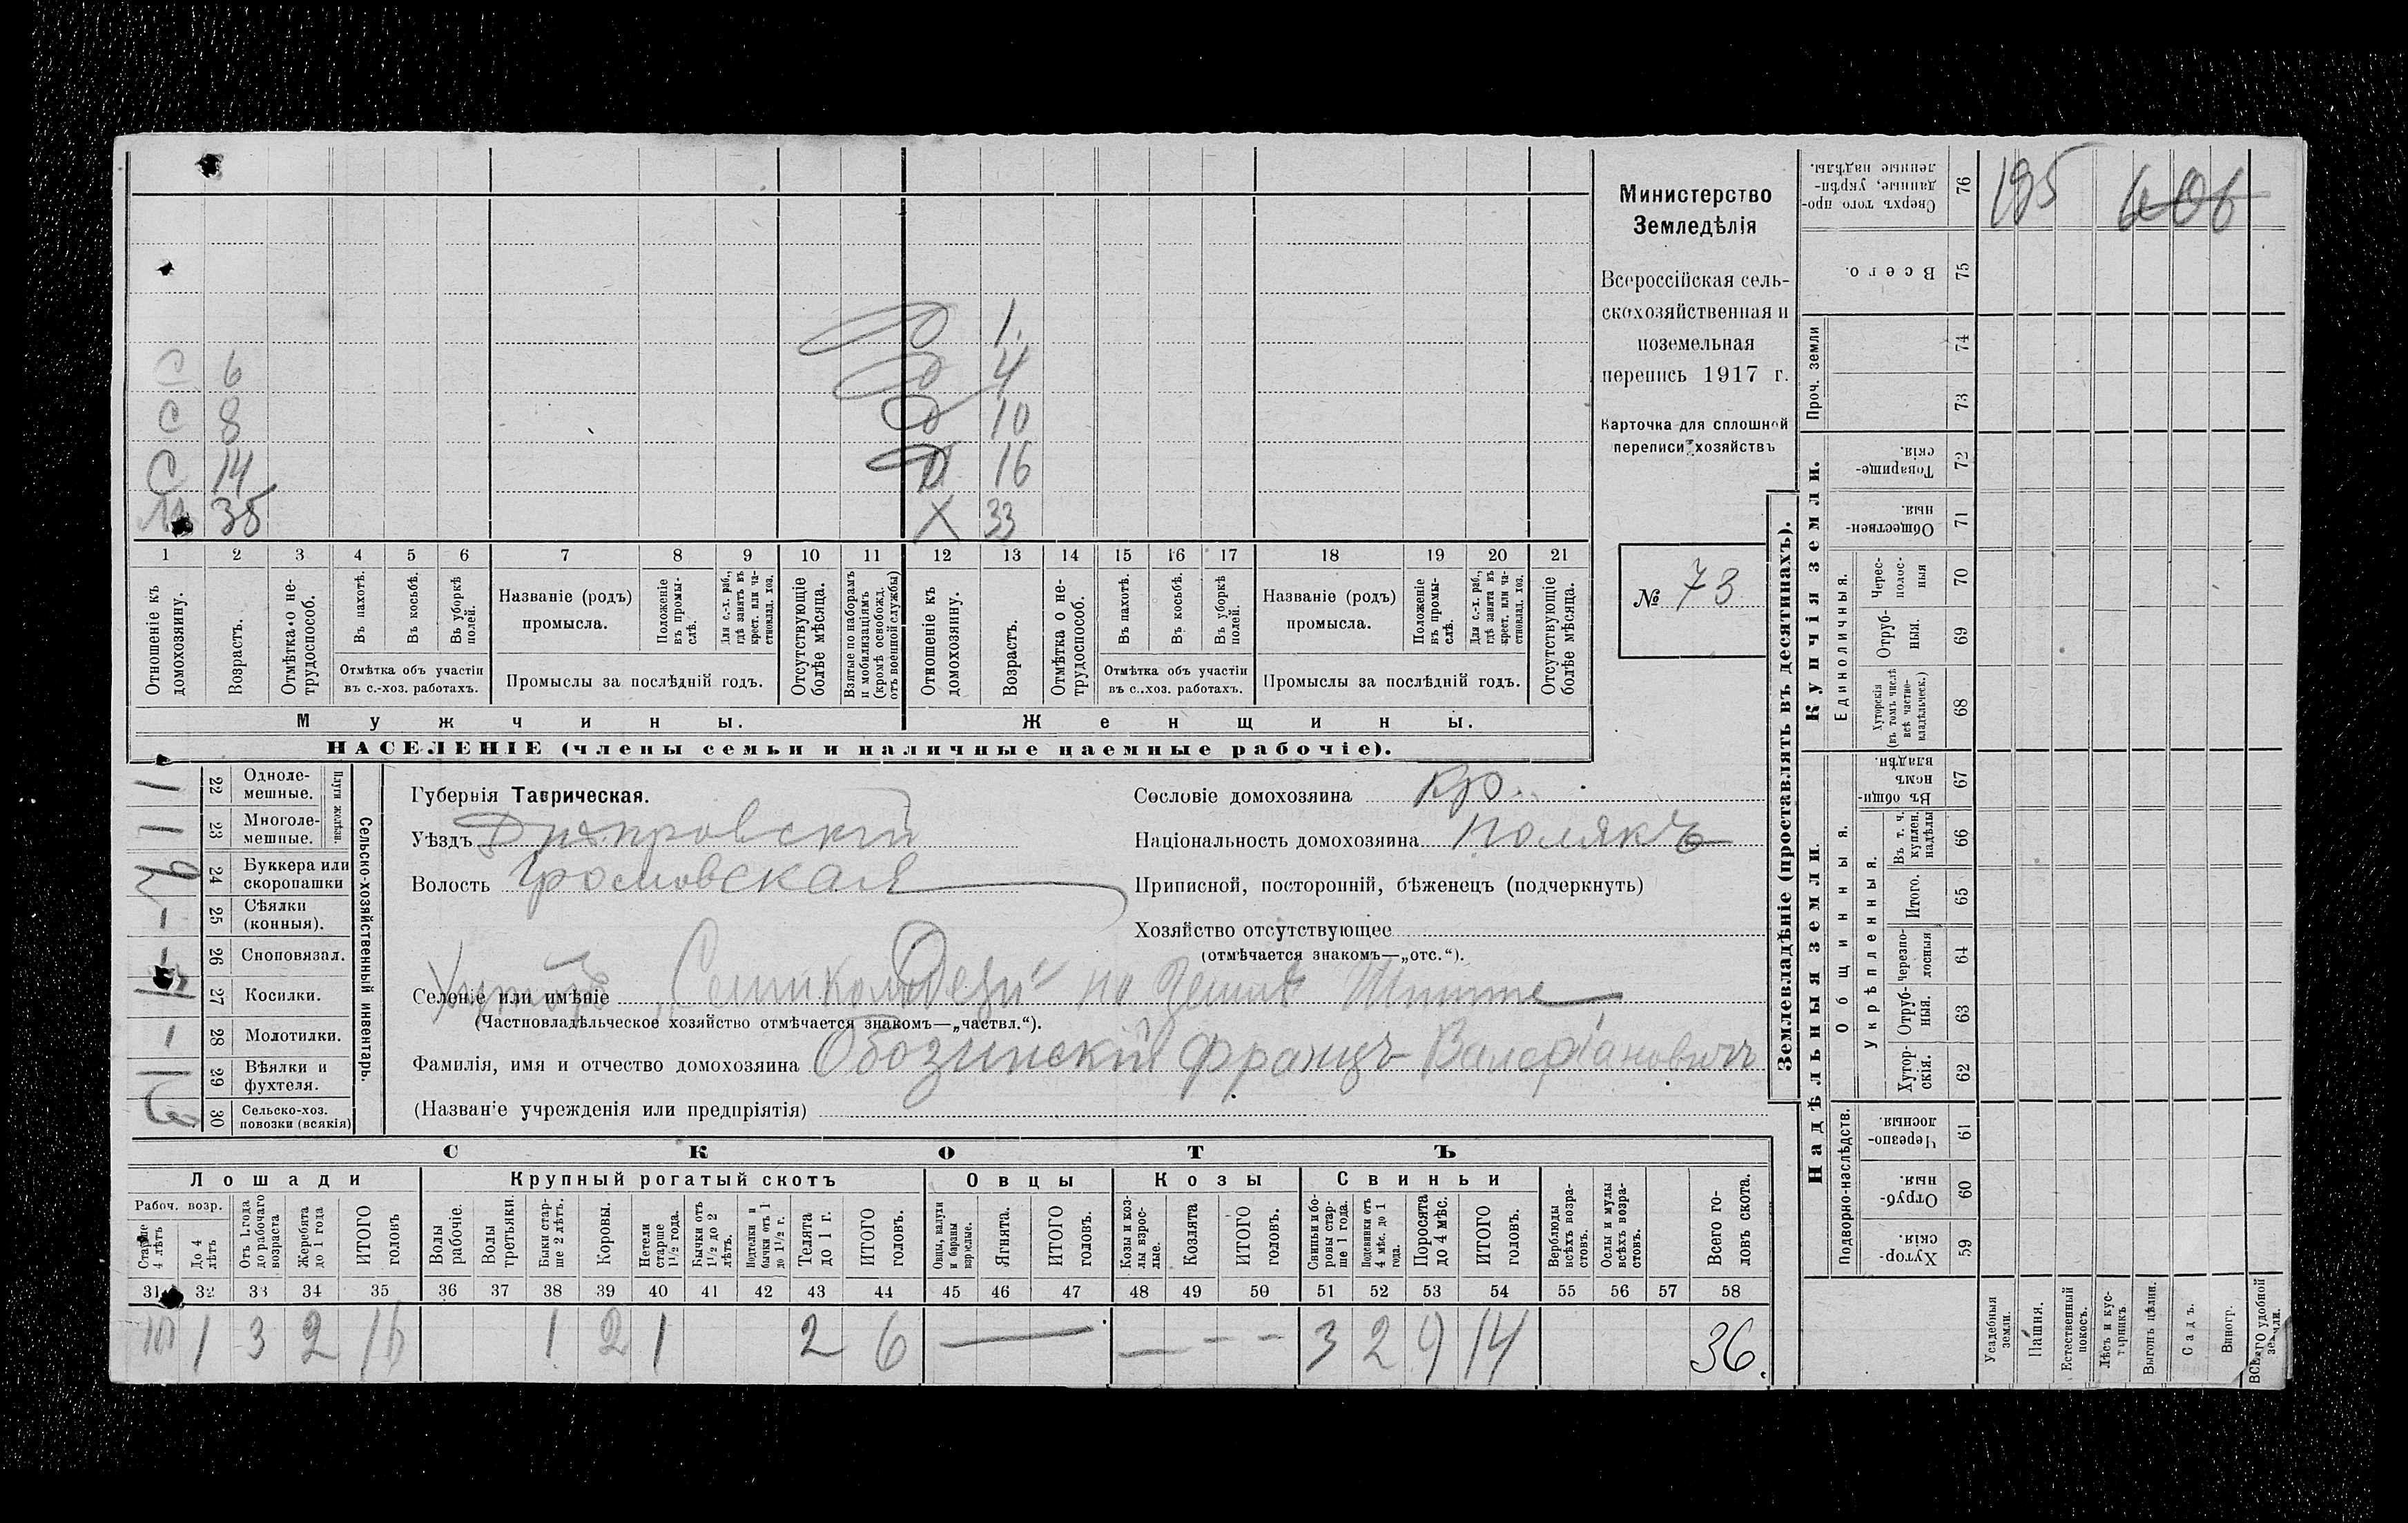 Министерство
Земледѣлія
Всероссійская сель-
скохозяйственная и
поземельная
перепись 1917 г.
Карточка для сплошной
переписи хозяйствъ
№ 73
1.
С 6 4
С 8 10
С 14 16
35 X 33
1 2 3 4 5 6 7 8 9 10 11 12 13 14 15 16 17 18 19 20 21
Отношеніе къ домохозяину.
Возрастъ.
Отмѣтка о не-трудоспособ.
Въ пахотѣ.
Въ косьбѣ.
Въ уборкѣ полей.
Отмѣтка объ участіи
въ с.-хоз. работахъ.
Названіе (родъ)
промысла.
Положеніе въ промы-слѣ.
Для с.-х. раб., гдѣ занятъ въ крест. или ча-стновлад. хоз.
Промыслы за послѣдній годъ.
Отсутствующіе болѣе мѣсяца.
Взятые по наборамъ и мобилизаціямъ (кромѣ освобожд. отъ военной службы)
Отношеніе къ домохозяину.
Возрастъ.
Отмѣтка о не-трудоспособ.
Въ пахотѣ.
Въ косьбѣ.
Въ уборкѣ полей.
Отмѣтка объ участіи
въ с.-хоз. работахъ.
Названіе (родъ)
промысла.
Положеніе въ промы-слѣ.
Для с.-х. раб., гдѣ занята въ крест. или ча-стновлад. хоз.
Промыслы за послѣдній годъ.
Отсутствующіе болѣе мѣсяца.
Мужчины. Женщины.
НАСЕЛЕНІЕ (члены семьи и наличные наемные рабочіе).
Сельско-хозяйственный инвентарь.
Плуги желѣзн.
1 22 Одноле-мешные.
1 23 Многоле-мешные.
24 Буккера или скоропашки
1 25 Сѣялки (конныя).
1 26 Сноповязал.
27 Косилки.
1 28 Молотилки.
29 Вѣялки и фухтеля.
30 Сельско-хоз. повозки (всякія)
Губернія Таврическая.
Уѣздъ Днѣпровскій
Волость Громовская
Сословіе домохозяина кр.
Національность домохозяина полякъ
Приписной, посторонній, бѣженецъ (подчеркнуть)
Хозяйство отсутствующее
(отмѣчается знакомъ—„отс.“).
Селеніе или имѣніе Хуторъ „Семиколодези“ на землѣ
(Частновладѣльческое хозяйство отмѣчается знакомъ—„частвл.“).
Фамилія, имя и отчество домохозяина Обозинскій Францъ Валеріановичъ
(Названіе учрежденія или предпріятія)
СКОТЪ
Лошади Крупный рогатый скотъ Овцы Козы Свиньи
Рабоч. возр.
Старше 4 лѣтъ
До 4 лѣтъ
Отъ 1 года до рабочаго возраста
Жеребята до 1 года
ИТОГО головъ
Волы рабочіе.
Волы третьяки.
Быки стар-ше 2 лѣтъ.
Коровы.
Нетели старше 1½ года.
Бычки отъ 1½ до 2 лѣтъ.
Подтелки и бычки отъ 1 до 1½ г.
Телята до 1 г.
ИТОГО головъ.
Овцы, валухи и бараны взрослые.
Ягнята.
ИТОГО головъ.
Козы и коз-лы взрос-лые.
Козлята
ИТОГО головъ.
Свиньи и бо-ровы стар-ше 1 года.
Подсвинки отъ 4 мѣс. до 1 года.
Поросята до 4 мѣс.
ИТОГО головъ.
Верблюды всѣхъ возра-стовъ.
Ослы и мулы всѣхъ возра-стовъ.
Всего го-ловъ скота.
31 32 33 34 35 36 37 38 39 40 41 42 43 44 45 46 47 48 49 50 51 52 53 54 55 56 57 58
10 1 3 2 16 1 2 1 2 6 — — - - 3 2 9 14 36.
Землевладѣніе (проставлять въ десятинахъ).
Сверхъ того про-данные, укрѣп-ленные надѣлы. 76 195
Всего. 75
Проч. земли 74
73
Купчія земли.
Товарище-скія. 72
Обществен-ныя. 71
Единоличныя.
Черес-полос-ныя 70
Отруб-ныя. 69
Хуторскія (въ томъ числѣ всѣ частно-владѣльческ.) 68
Надѣльныя земли.
Общинныя.
Въ общи-номъ владѣн. 67
Укрѣпленныя.
Въ т. ч. куплен. надѣлы 66
Итого. 65
Черезпо-лосныя 64
Отруб-ныя. 63
Хутор-скія. 62
Подворно-наслѣдств.
Черезпо-лосныя 61
Отруб-ныя. 60
Хутор-скія. 59
Усадебныя земли.
Пашня.
Естественный покосъ.
Лѣсъ и кус-тарникъ
Выгонъ цѣлин.
Садъ.
Виногр.
ВСЕГО удобной земли.